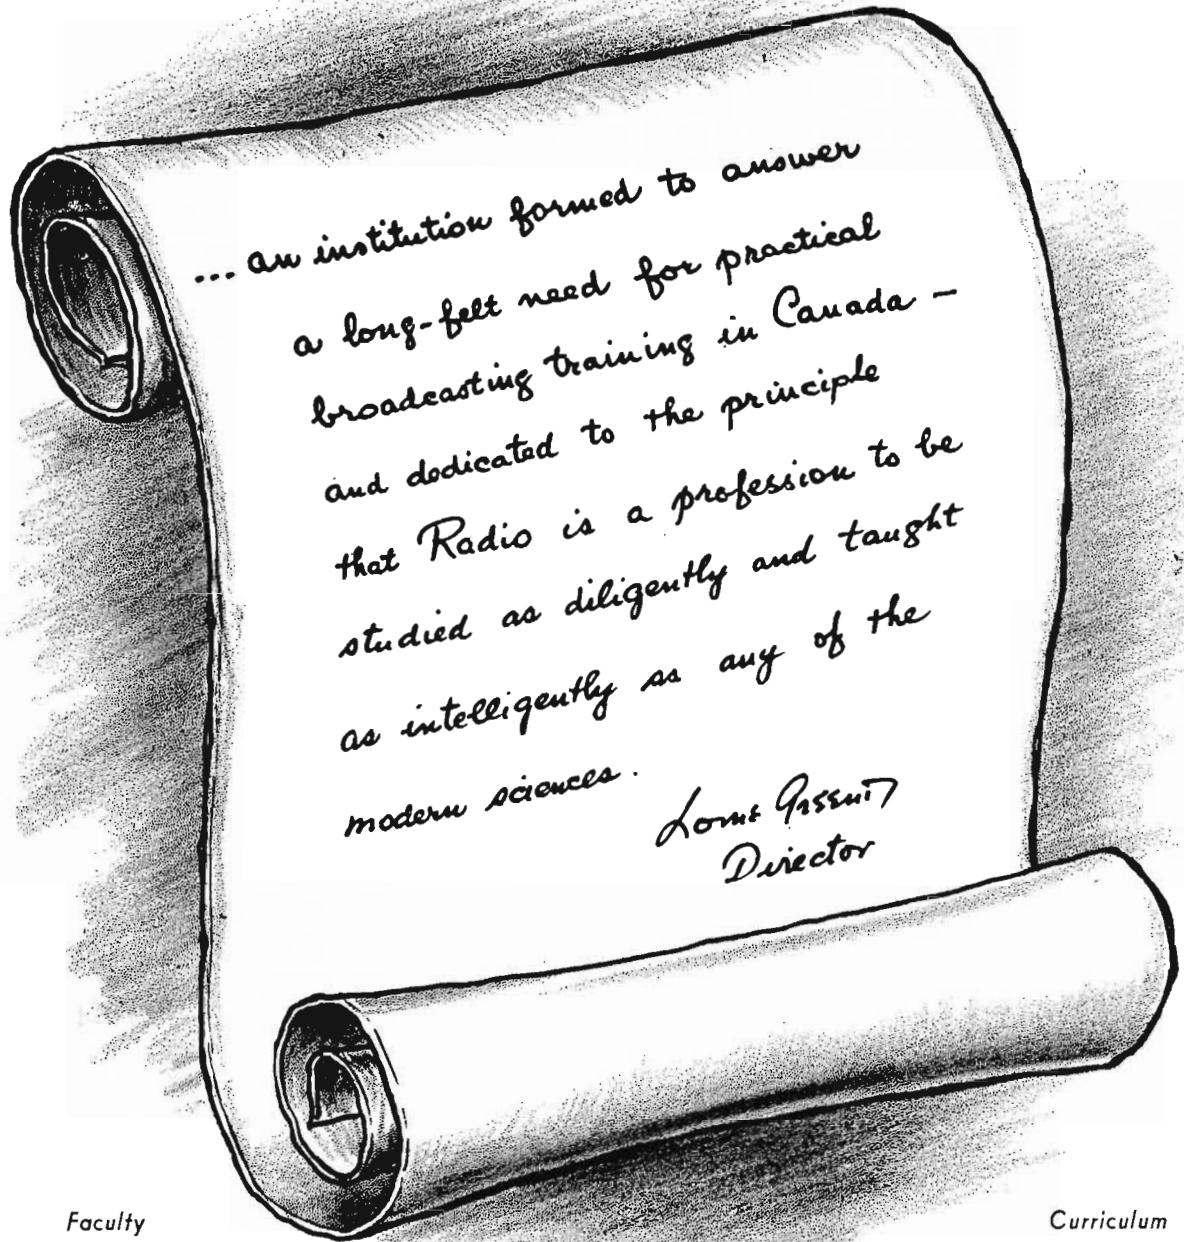 ... an institution formed to answer
a long-felt need for practical
broadcasting training in Canada –
and dedicated to the principle
that Radio is a profession to be
studied as diligently and taught
as intelligently as any of the
modern sciences.
Lorne Greene
Director
Faculty
Curriculum